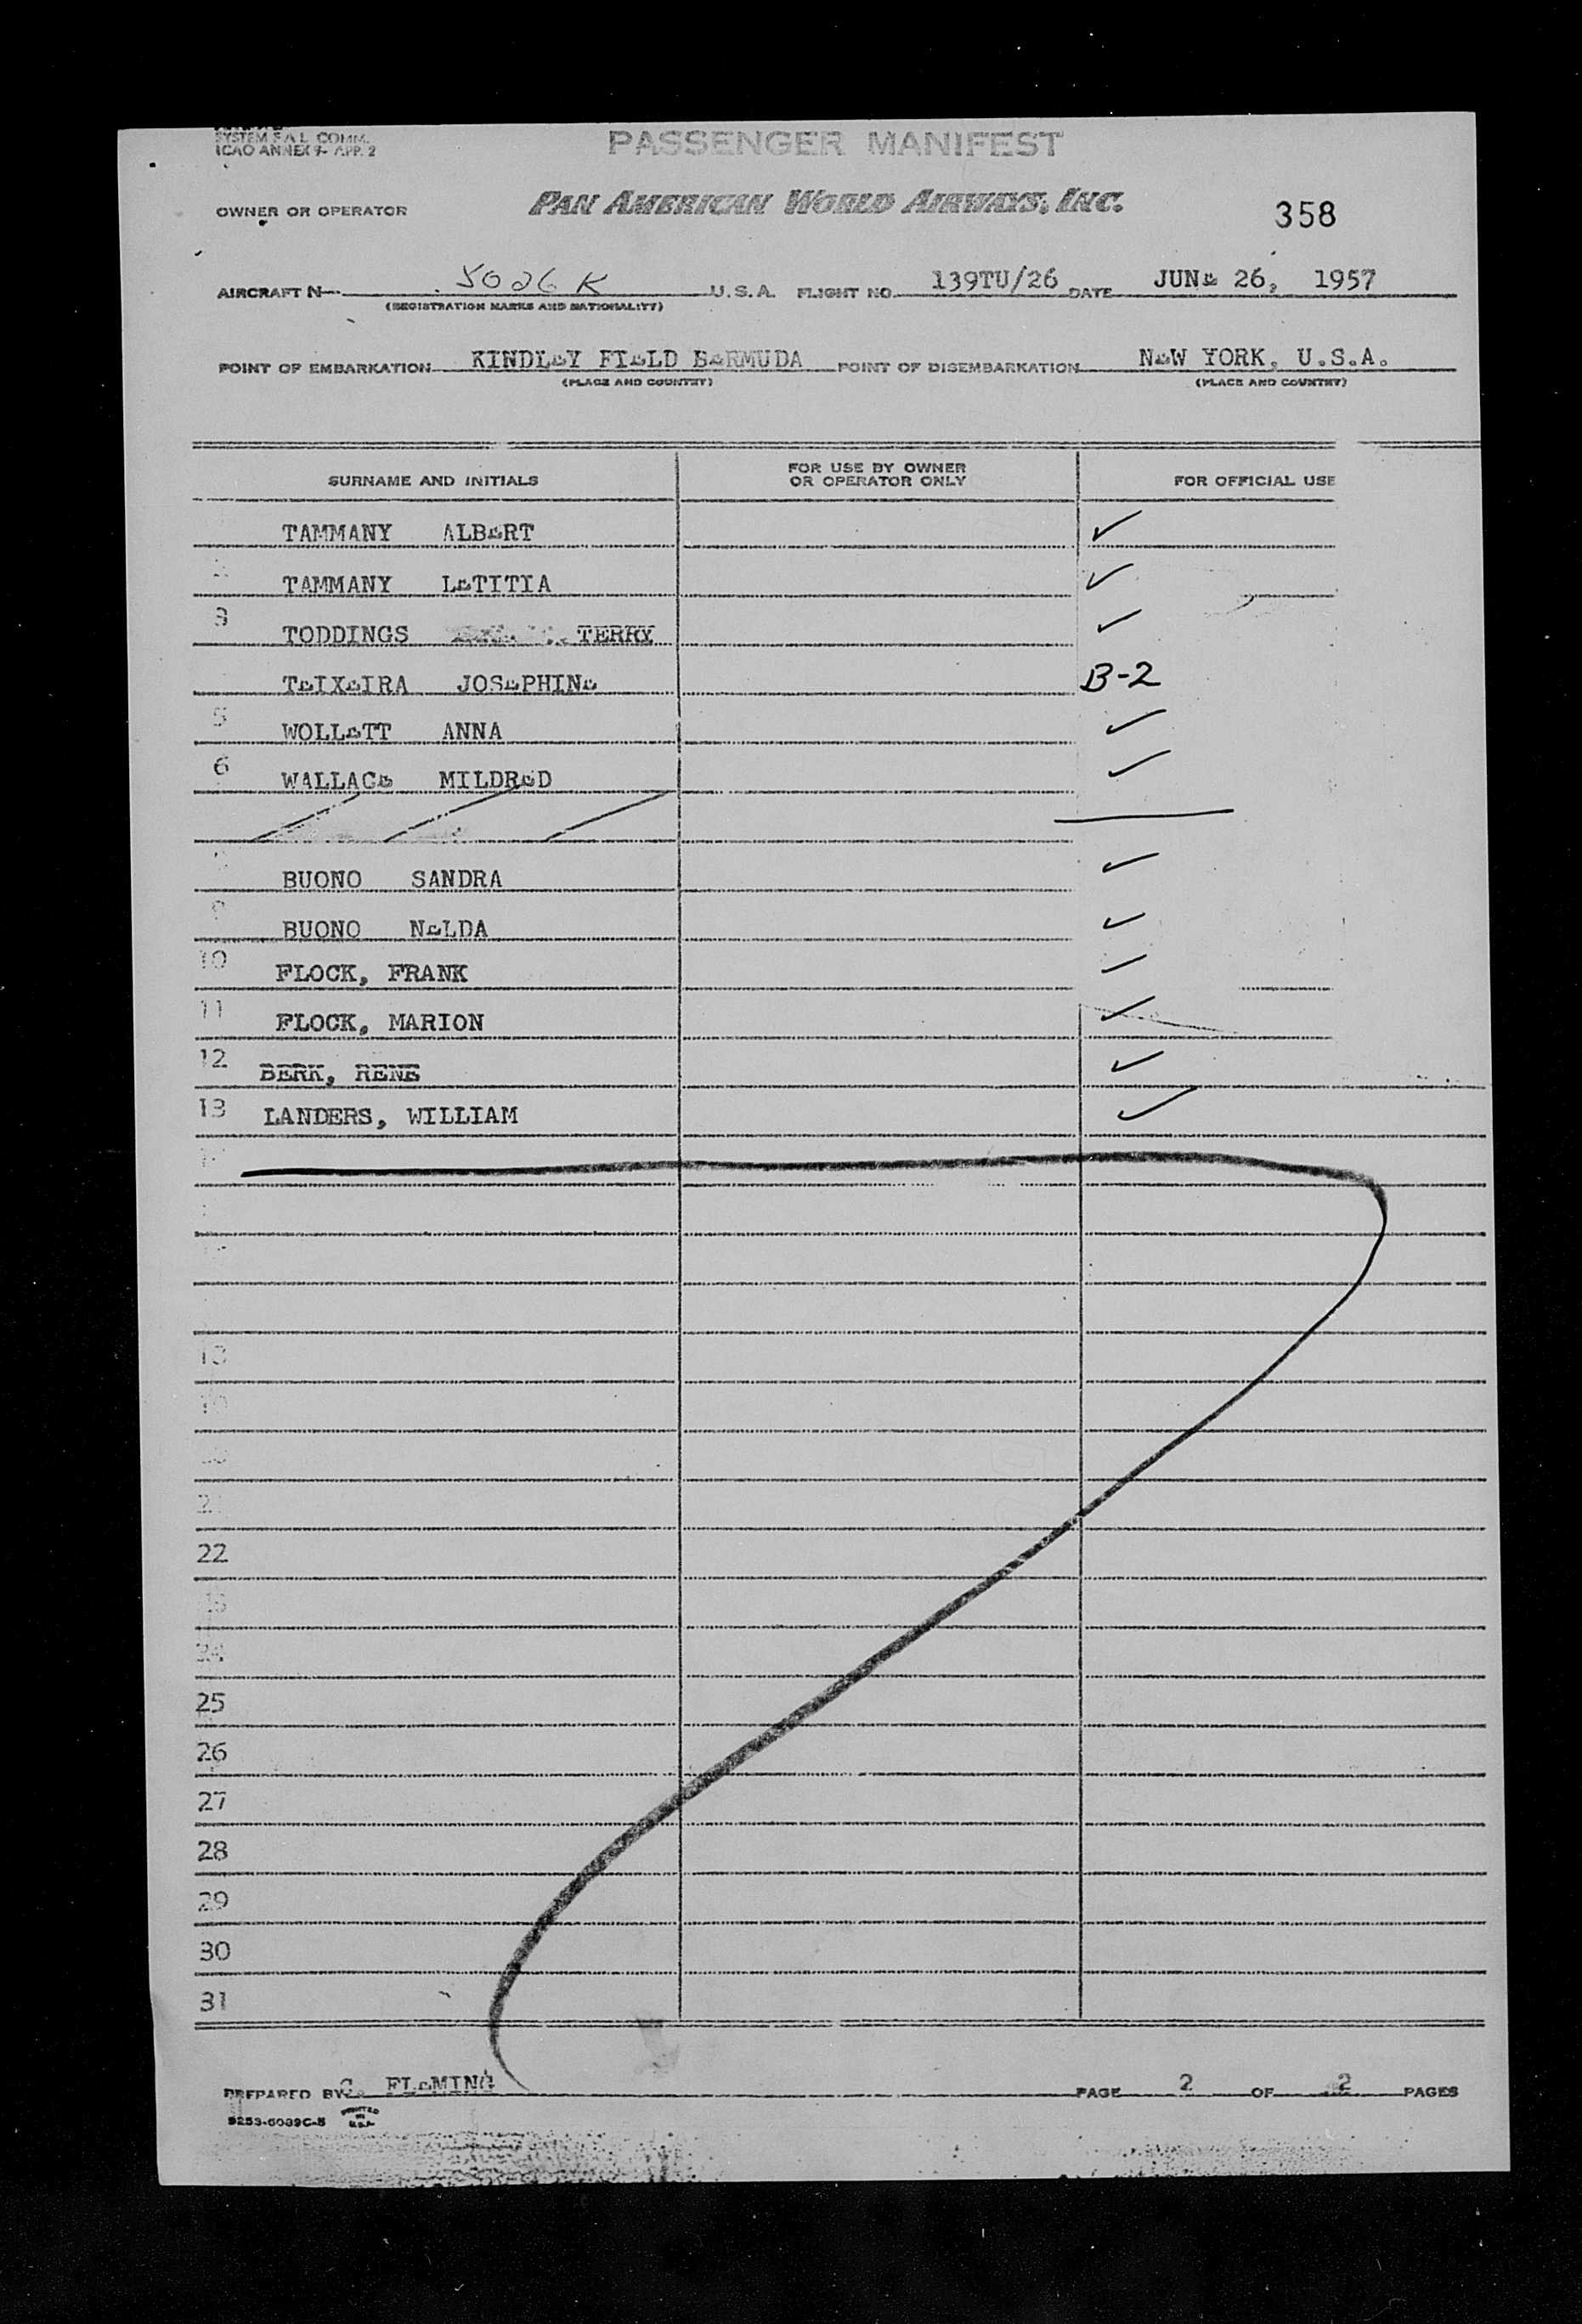 SYSTEM F A L COMM.
ICAO ANNEX 9- APP. 2
PASSENGER MANIFEST
OWNER OR OPERATOR PAN AMERICAN WORLD AIRWAYS, INC. 358
AIRCRAFT N 5026K U.S.A. FLIGHT NO. 139TU/26 DATE JUNE 26, 1957
(REGISTRATION MARKS AND NATIONALITY)
POINT OF EMBARKATION KINDLEY FIELD BERMUDA POINT OF DISEMBARKATION NEW YORK, U.S.A.
(PLACE AND COUNTRY) (PLACE AND COUNTRY)
SURNAME AND INITIALS FOR USE BY OWNER OR OPERATOR ONLY FOR OFFICIAL USE
TAMMANY ALBERT ✓
TAMMANY LETITIA ✓
3 TODDINGS TERRY ✓
TEIXEIRA JOSEPHINE B-2
5 WOLLETT ANNA ✓
6 WALLACE MILDRED ✓
BUONO SANDRA ✓
9 BUONO NELDA ✓
10 FLOCK, FRANK ✓
11 FLOCK, MARION ✓
12 BERK, RENE ✓
13 LANDERS, WILLIAM ✓
18
19
20
21
22
23
24
25
26
27
28
29
30
31
PREPARED BY FLEMING PAGE 2 OF 2 PAGES
PRINTED IN U.S.A.